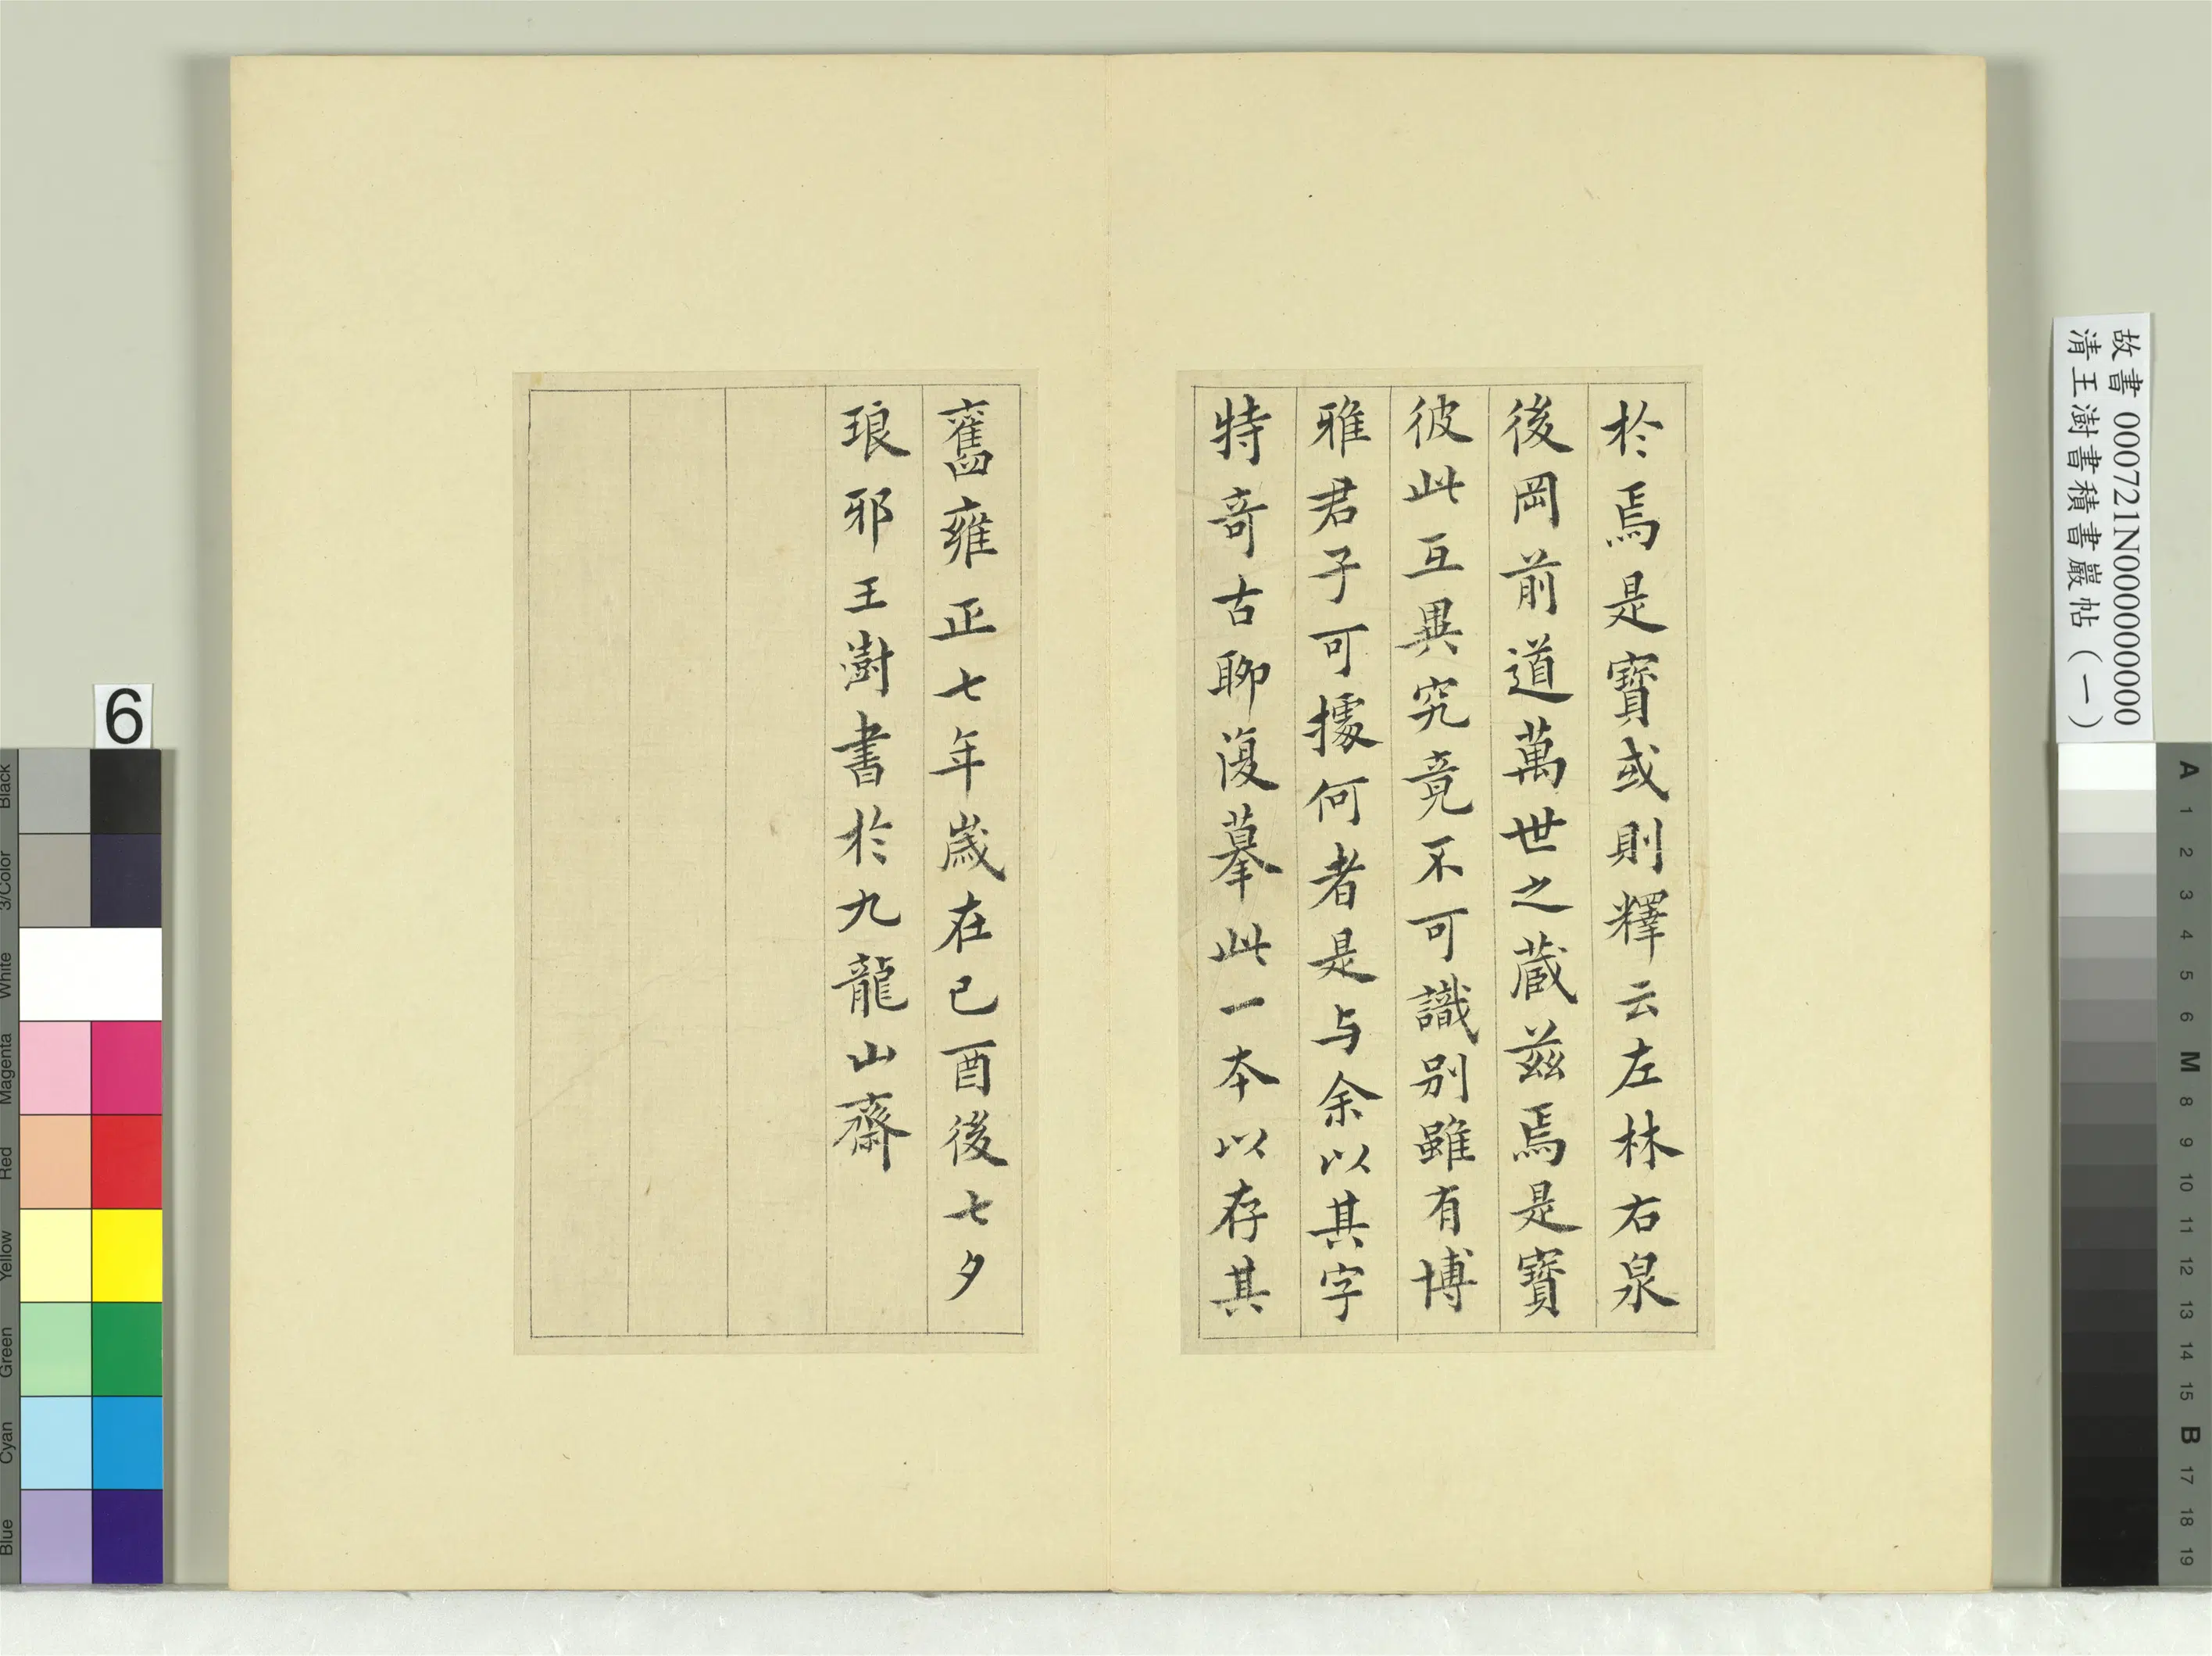 於焉是寶或則釋云左林右泉
後岡前道萬世之蔵兹焉是寶
彼此互異究竟不可識別雖有博
雅君子可據何者是与余以其字
特奇古聊復摹此一本以存其
舊雍正七年歲在己酉後七夕
琅邪王澍書於九龍山齋
故書 000721N000000000
清王澍書積書巖帖（一）
6
Black
3/Color
White
Magenta
Red
Yellow
Green
Cyan
Blue
A
1
2
3
4
5
6
M
8
9
10
11
12
13
14
15
B
17
18
19